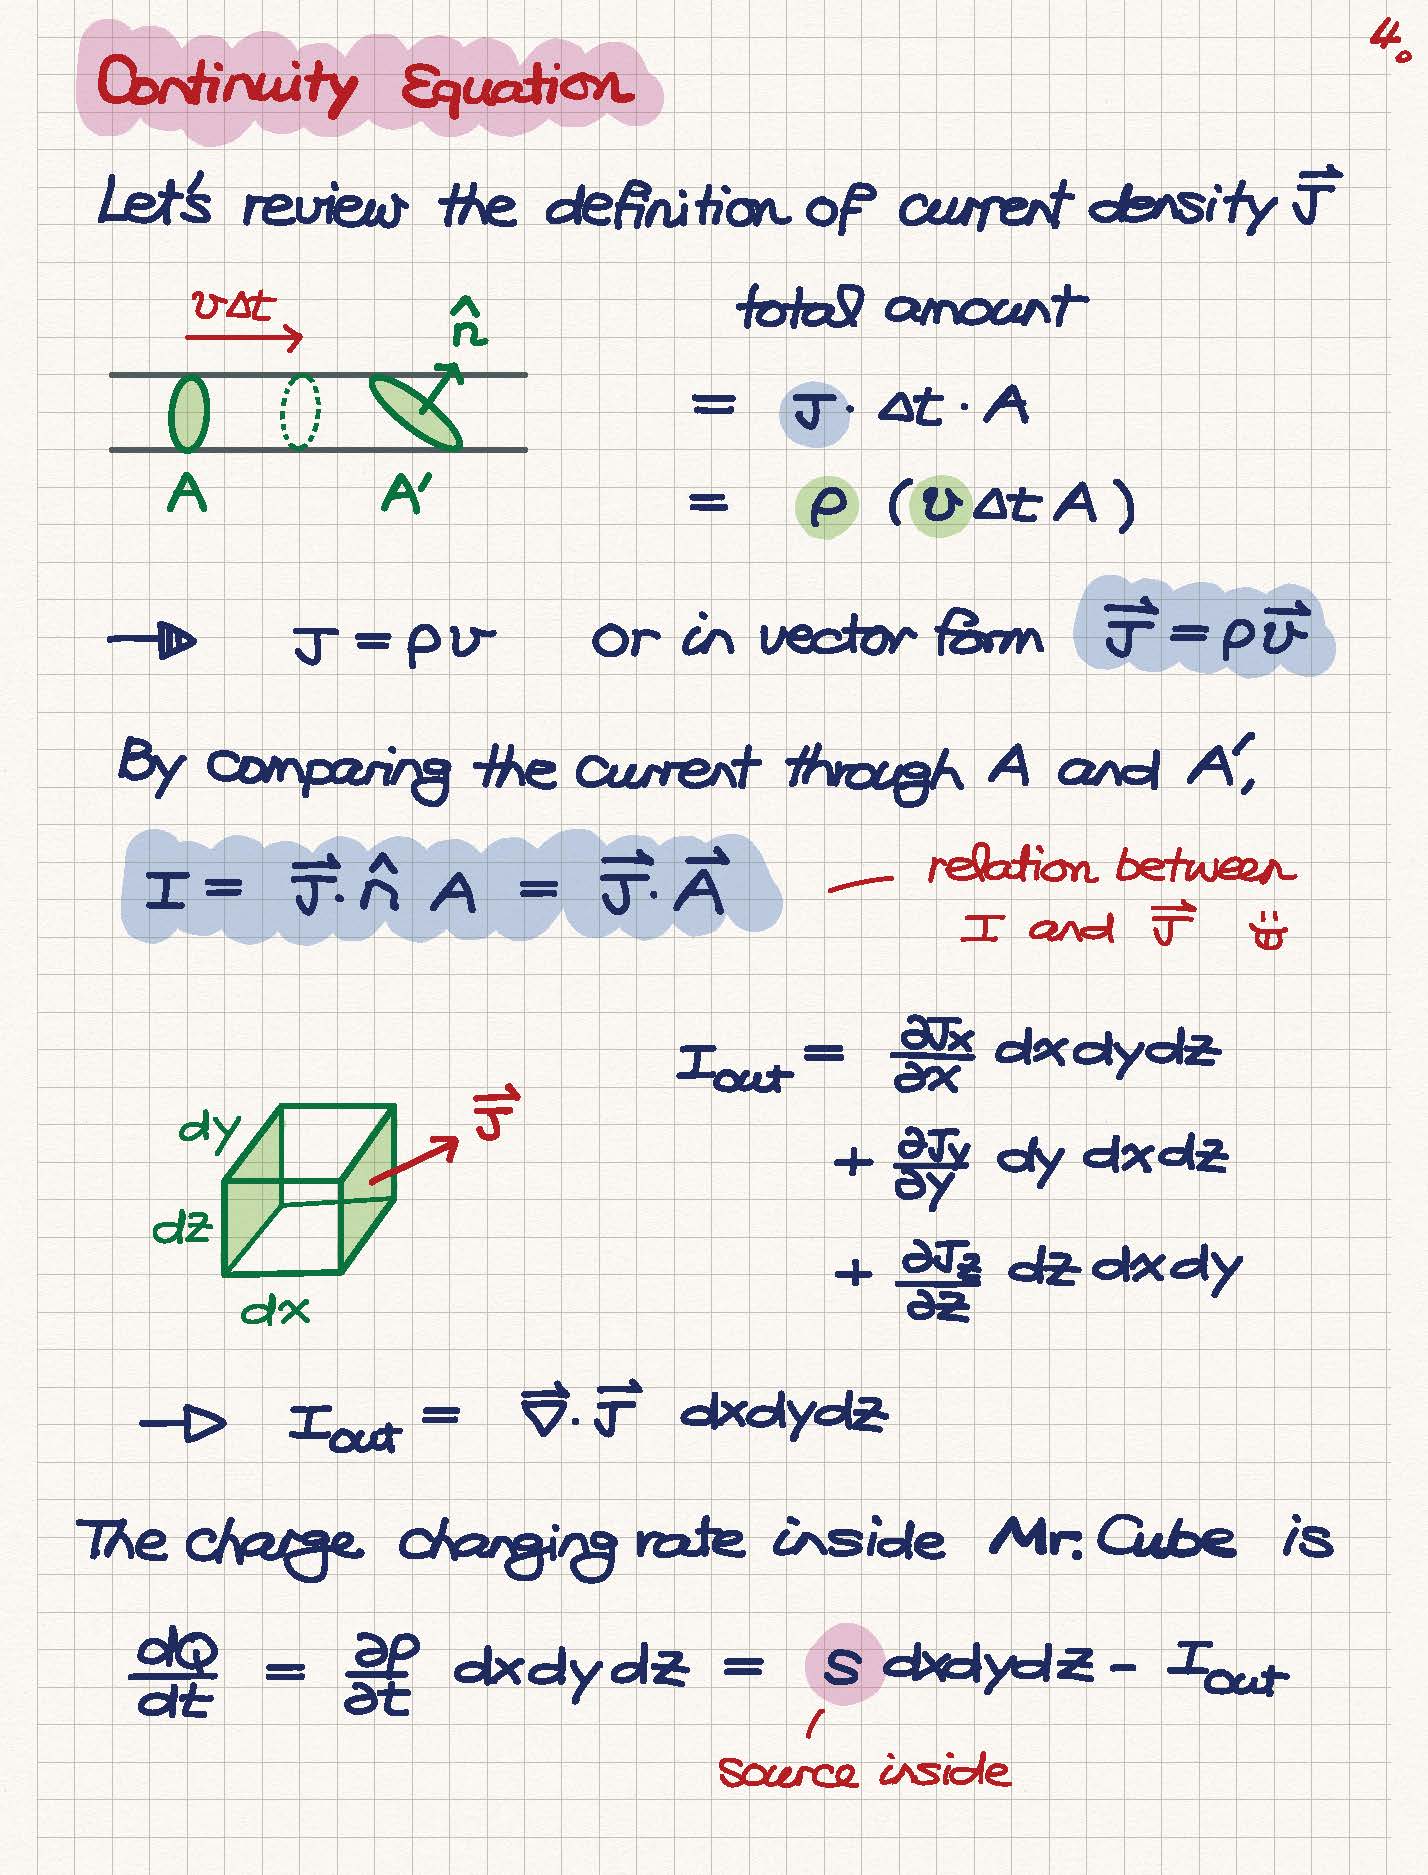 4.
Continuity Equation
Let's review the definition of current density J⃗
vΔt
n̂
A
A′
total amount
= J · Δt · A
= ρ (vΔt A)
J = ρv or in vector form J⃗ = ρv⃗
By comparing the current through A and A′,
I = J⃗ · n̂ A = J⃗ · A⃗
relation between
I and J⃗
dy
dz
dx
J⃗
I_out = ∂Jx/∂x dxdydz
+ ∂Jy/∂y dy dxdz
+ ∂Jz/∂z dz dxdy
→ I_out = ∇⃗ · J⃗ dxdydz
The charge changing rate inside Mr. Cube is
dQ/dt = ∂ρ/∂t dxdydz = s dxdydz - I_out
source inside